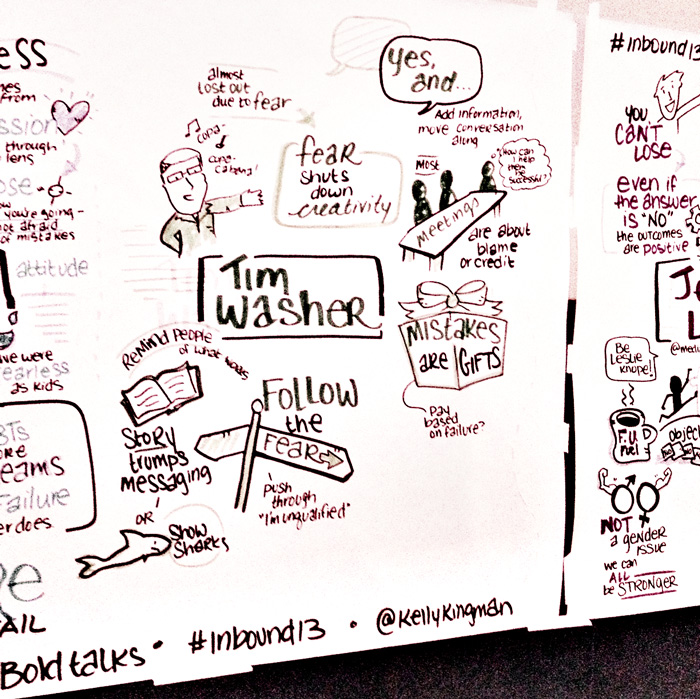 ESS
from
ssion
through
lens
ose
you're going-
not afraid
of mistakes
attitude
we were
fearless
as kids
BTs
ore
reams
Failure
er does
AIL
almost
lost out
due to fear
copa-
copa-
cabana!
fear
shuts
down
creativity
Yes,
and...
Add information,
move conversation
along
How can
I help
them be
successful?
most
meetings
are about
blame
or credit
Tim
Washer
Mistakes
are GIFTS
Pay
based
on failure?
Remind people
of what was
Story
trumps
messaging
OR
Show
Sharks
Follow
the
Fear
push
through
"I'm unqualified"
Bold talks • #Inbound13 • @KellyKingman
#Inbound13
YOU
CAN'T
LOSE
even if
the answer
is "NO"
the outcomes
are positive
@medi
Be
Leslie
Knope!
F.U.
me!
object
NOT
a gender
issue
we can
ALL
be STRONGER